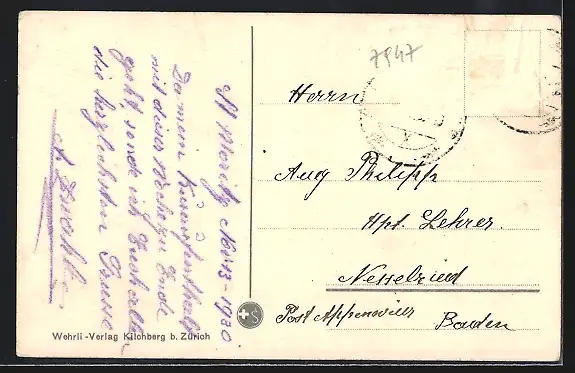 7847
St Moritz Nov. 13-1930
Da mein Kuraufenthalt
mit dieser Woche zu Ende
geht, sende ich Euch allen
die herzlichsten Grüsse
Herrn
Aug Philipp
Hpt. Lehrer
Nesselried
Post Appenweier
Baden
Wehrli-Verlag Kilchberg b. Zürich
S